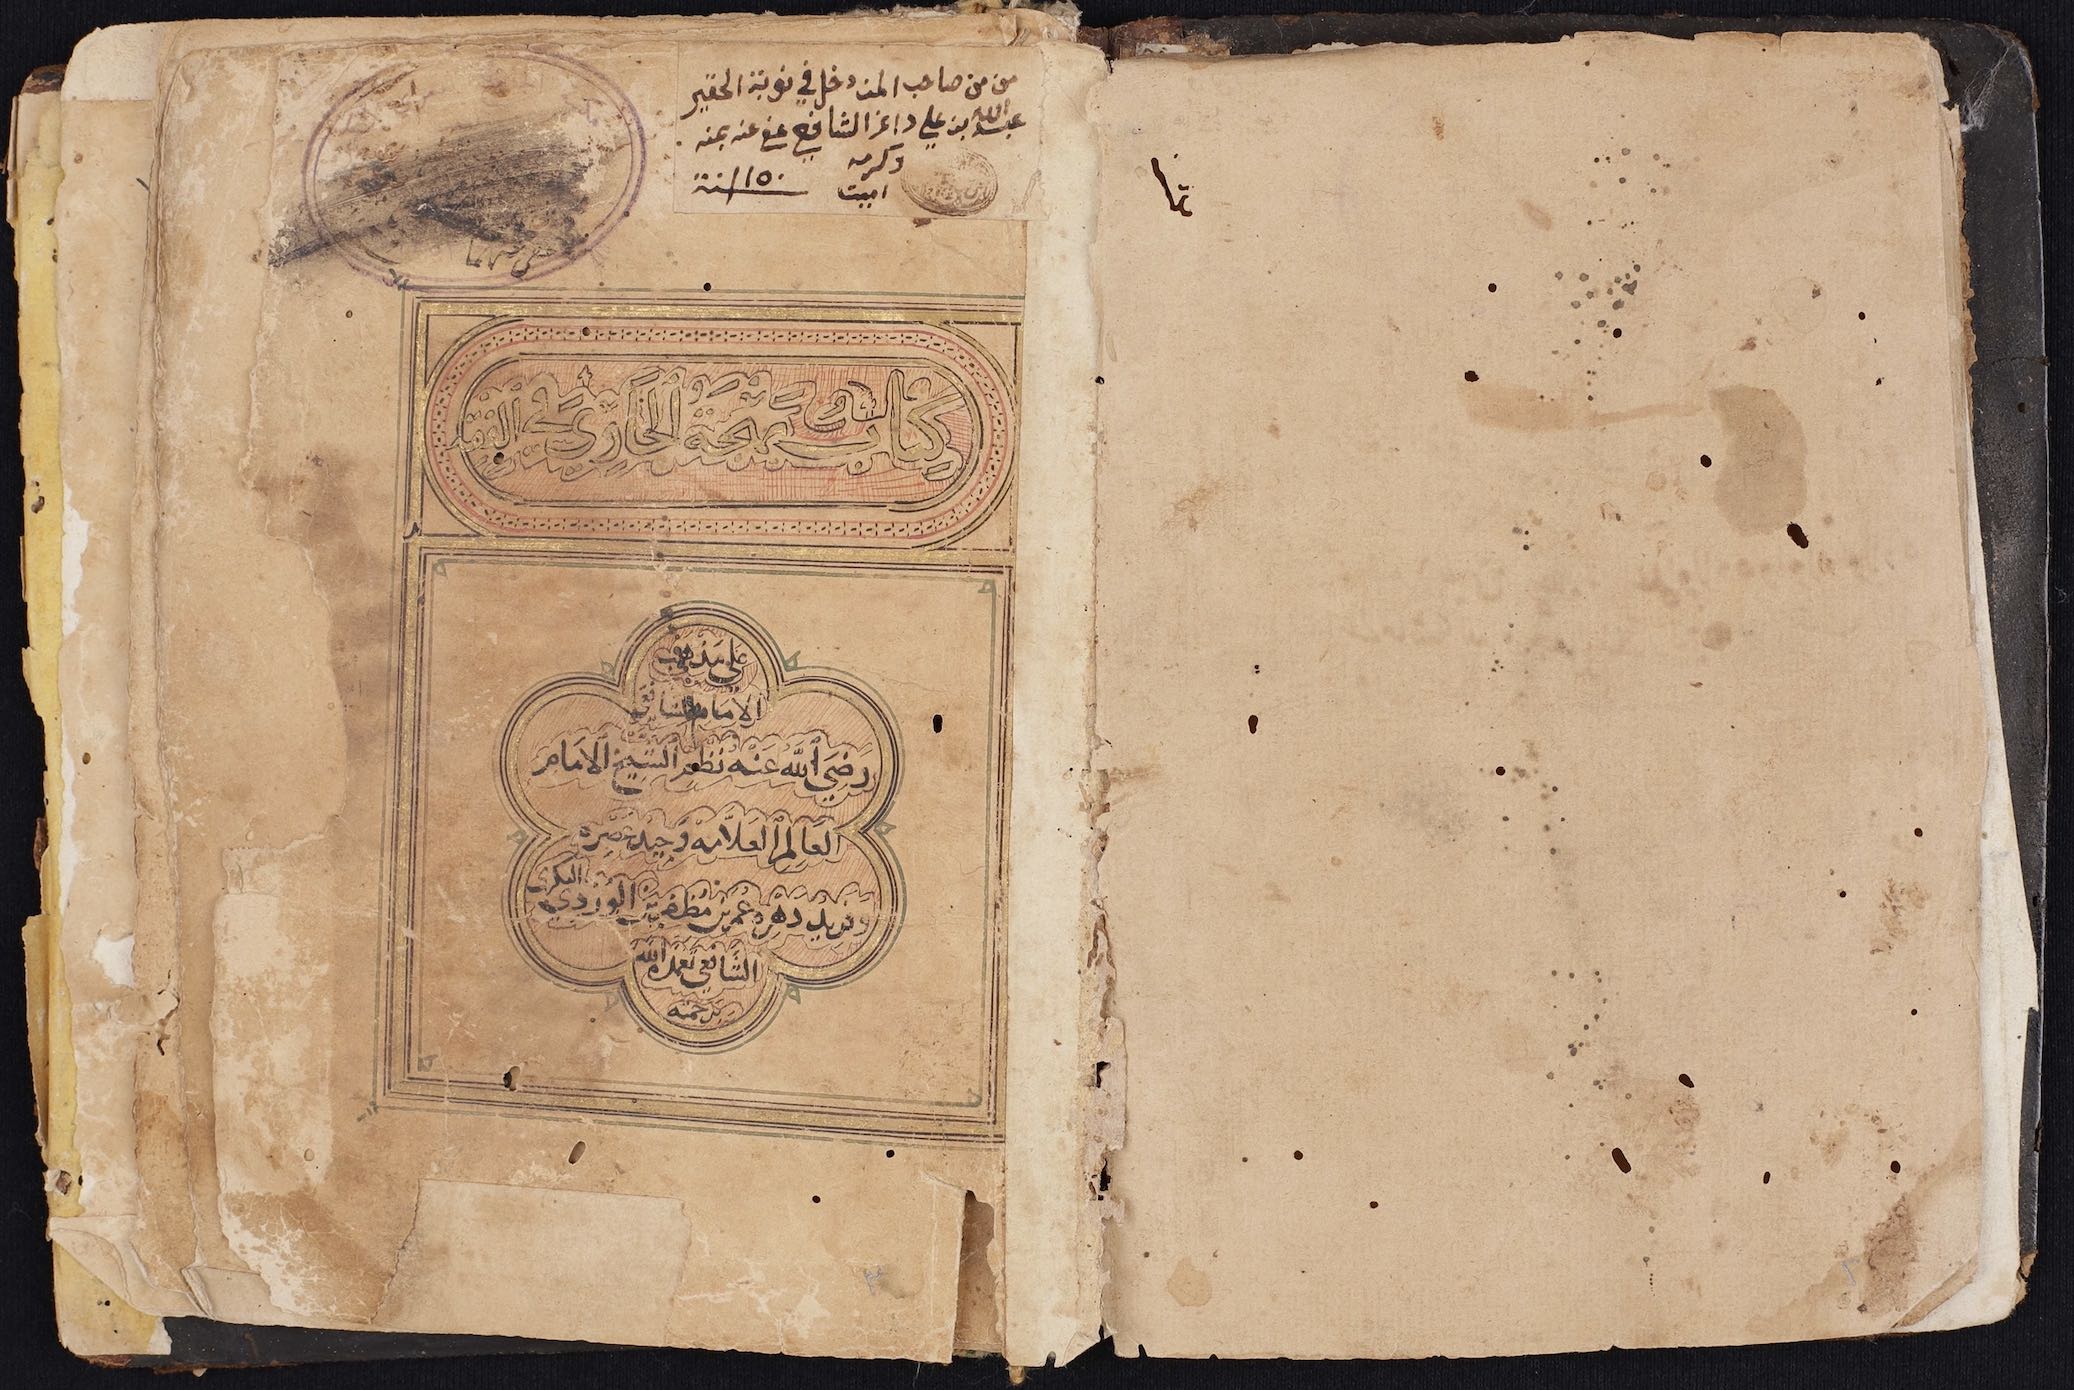 من من صاحب المن دخل في نوبة الحقير
عبد الله بن علي داغر الشافعي عفي عنه بمنه
وكرمه
امين
سنة ١١٥٠
كتاب بهجة الحاوي في الفقه
على مذهب
الامام الشافعي
رضي الله عنه نظم الشيخ الامام
العالم العلامه وحيد عصره
وفريد دهره عمر بن مظفر بن الوردي البكري
الشافعي تغمده الله
برحمته